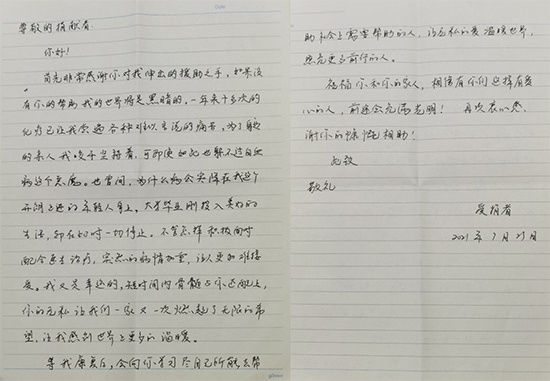 尊敬的捐献者:
你好!
首先非常感谢你对我伸出的援助之手,如果没
有你的帮助 我的世界将是黑暗的,一年来十多次的
化疗已让我尝遍各种难以言说的痛苦,为了
的亲人 我咬牙坚持着,可即使如此也躲不过白血
病这个恶魔。也曾问,为什么病会突降在我这个
开朗上进的年轻人身上,大学毕业刚投入美好的
生活,却在此时一切停止。不管怎样积极面对
配合医生治疗,突然的病情加重,让人更加难接
受。我又是幸运的,短时间内骨髓与你匹配上,
你的无私让我们一家又一次燃起了无限的希
望,让我感到世界上更多的温暖。
等我康复后,会向你学习尽自己所能去帮
助社会上需要帮助的人,让无私的爱温暖世界,
照亮更多前行的人。
祝福你和你的家人,相信有你们这样有爱
心的人,前途会充满光明! 再次衷心感
谢你的慷慨相助!
此致
敬礼
受捐者
2021年7月29日